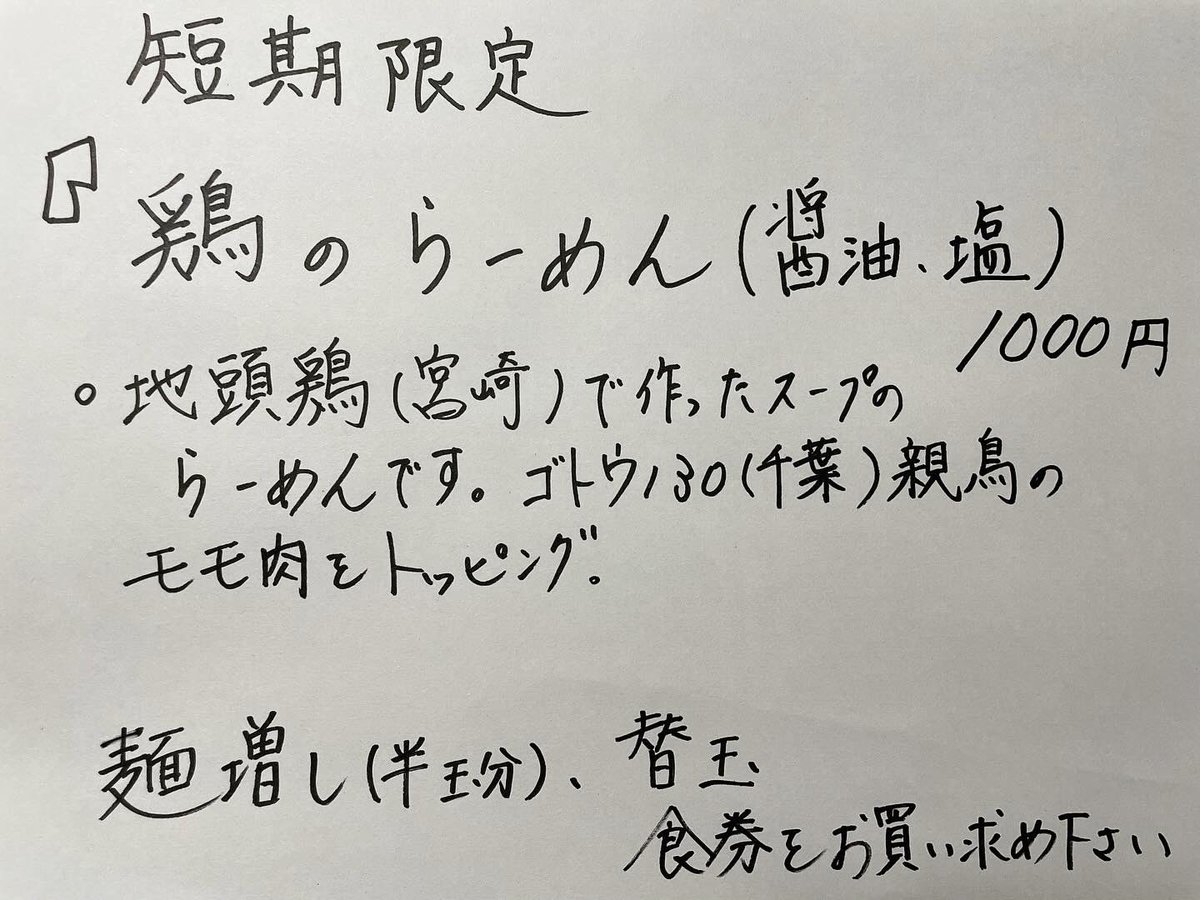 短期限定
『鶏のらーめん(醤油、塩)
1000円
。地頭鶏(宮崎)で作ったスープの
らーめんです。ゴトウ130(千葉)親鳥の
モモ肉をトッピング。
麺増し(半玉分)、替玉
食券をお買い求め下さい